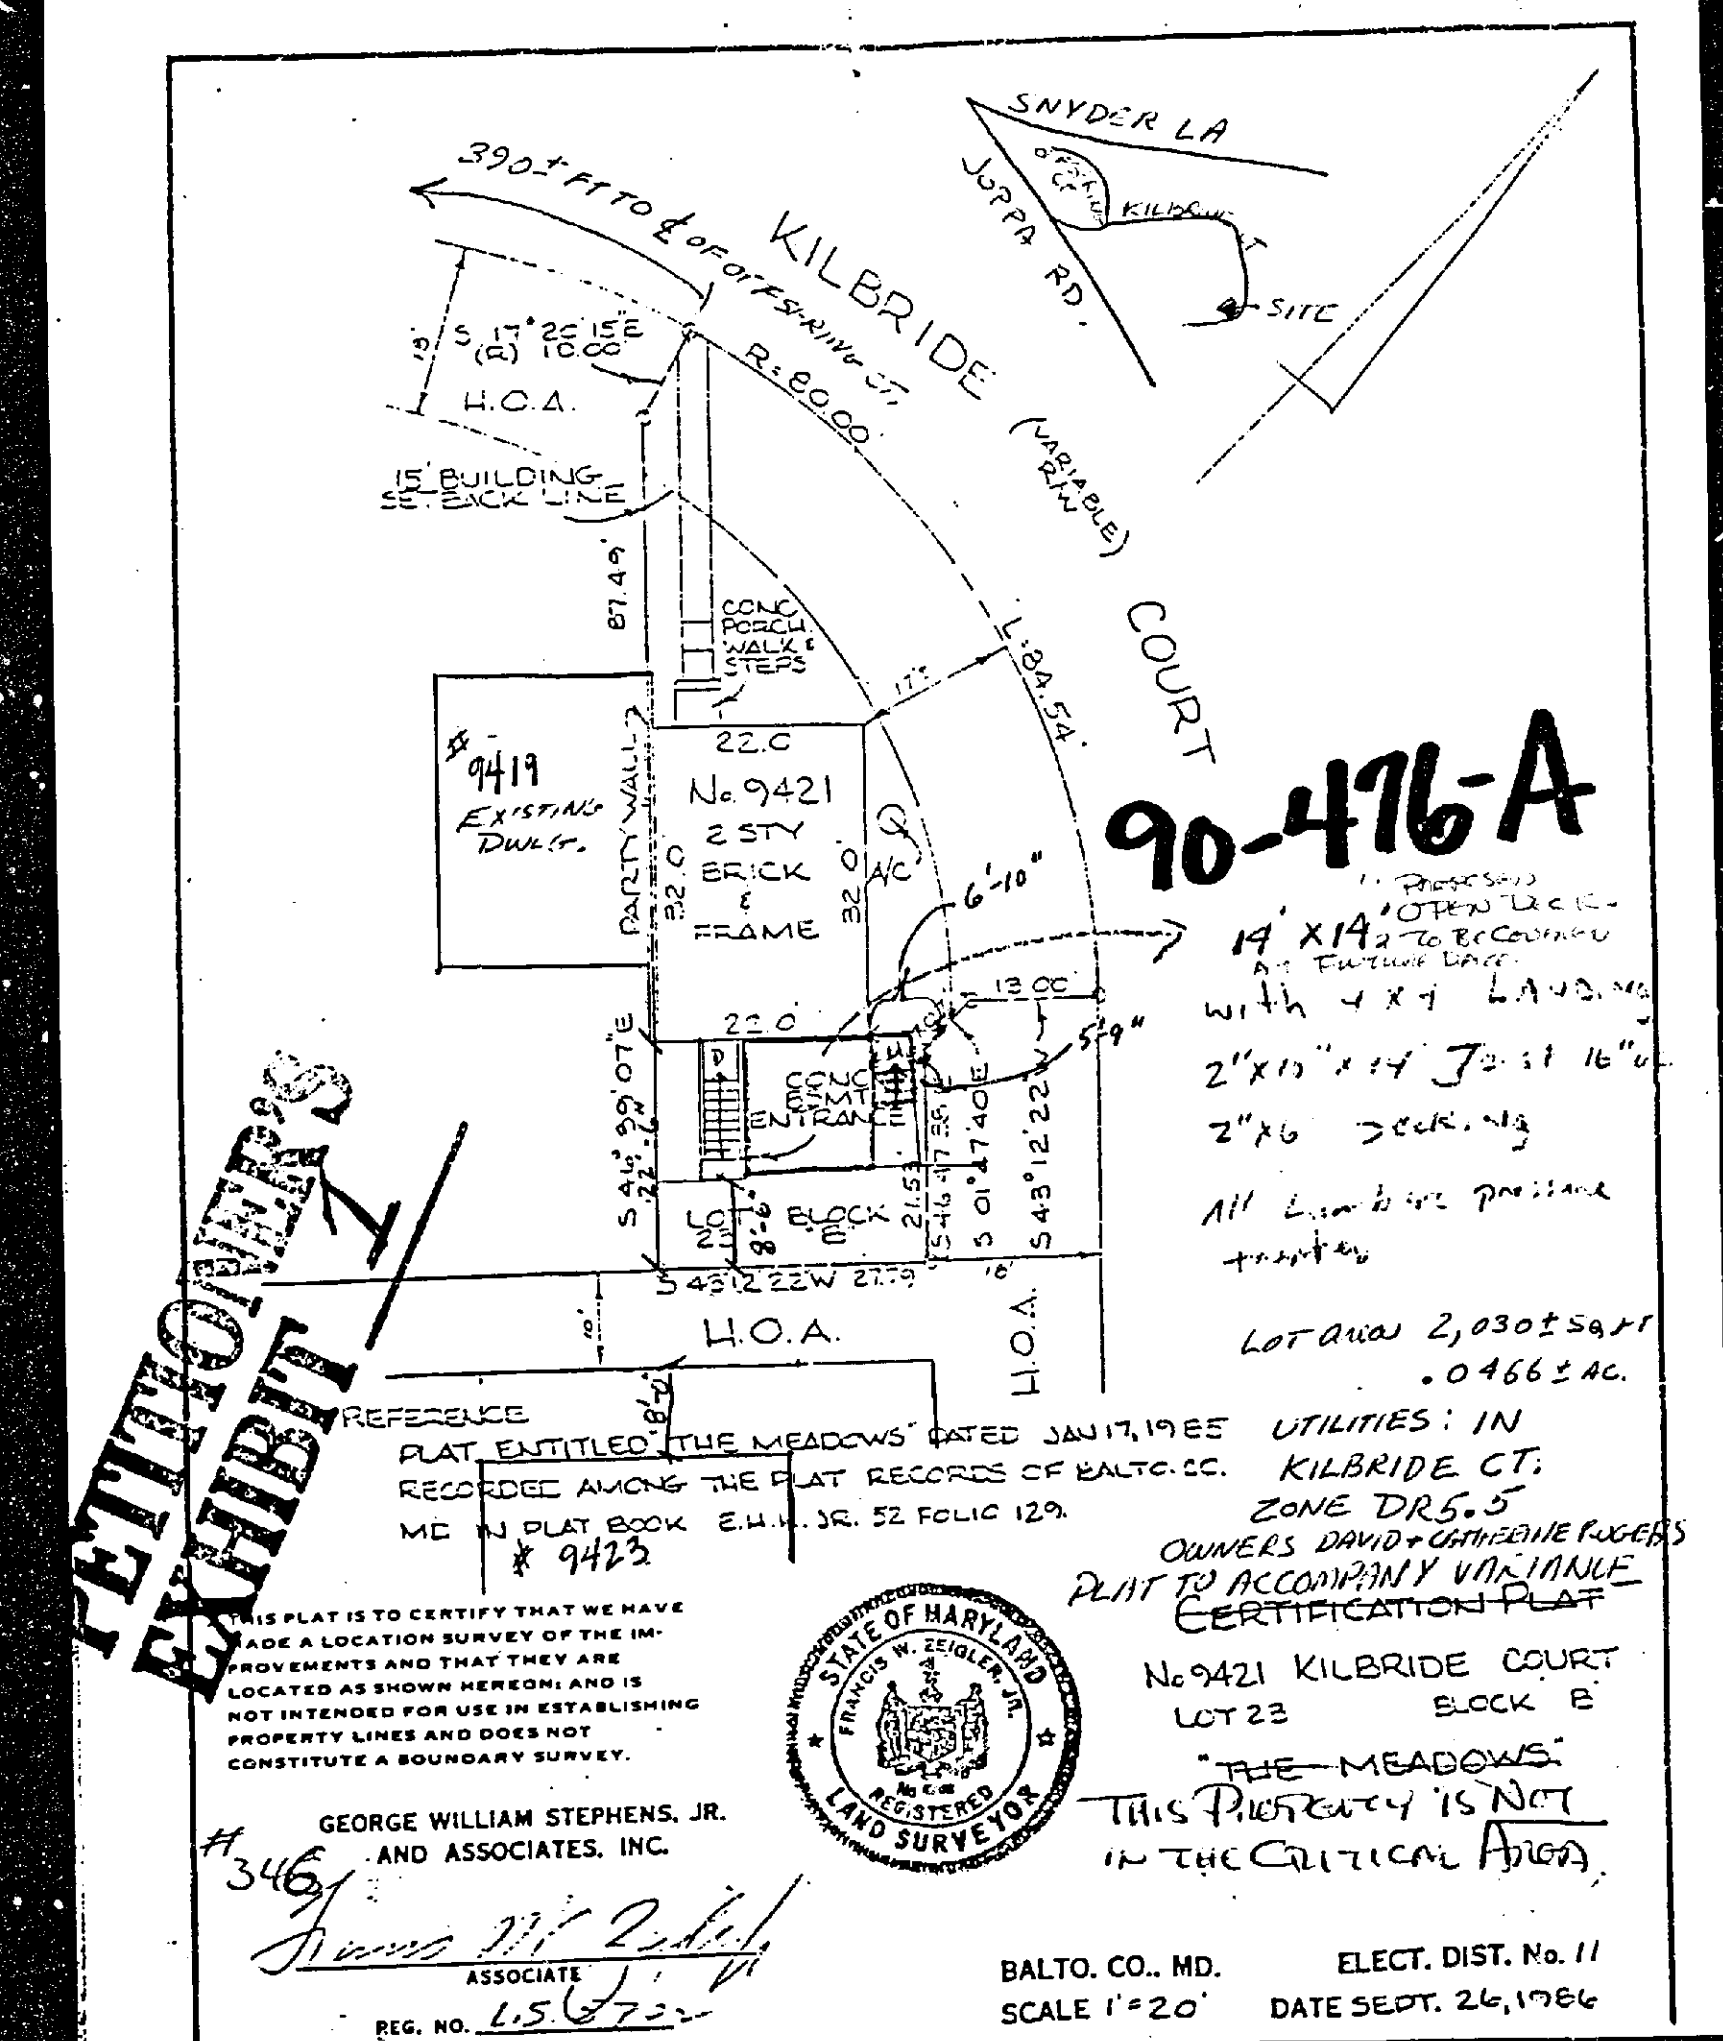 SNYDER LA
JOPPA RD.
SITE
390± FT TO ℄ OF OFFSPRING CT.
KILBRIDE
COURT
(VARIABLE)
R/W
18'
S 17° 26' 15" E
(R) 10.00'
H.O.A.
R=80.00'
L=84.54'
15' BUILDING
SETBACK LINE
87.49'
CONC
PORCH
WALK &
STEPS
17'±
PARTY WALL
# 9419
EXISTING
DWLG.
22.0
No. 9421
2 STY
BRICK
&
FRAME
32.0
32.0'
A/C
6'-10"
90-476-A
PROPOSED
OPEN DECK
14' X 14'
TO BE COVERED
AT FUTURE DATE
with 4 x 4 LANDING
2"x10"x14' Joist 16"
2"x6 Decking
All Lumber pressure
treated
13.00'
5'-9"
22.0'
CONC
BSMT
ENTRANCE
S 46° 39' 07" E
22'-6"
8'-6"
21.53'
S 01° 47' 40" E
S 43° 12' 22" W
LOT
23
BLOCK
"E"
S 43 12 22 W 27.79
18'
10'
H.O.A.
H.O.A.
8'-0"
LOT area 2,030± Sq FT
.0466 ± AC.
REFERENCE
PLAT ENTITLED "THE MEADOWS" DATED JAN 17, 1985
RECORDED AMONG THE PLAT RECORDS OF BALTO. CO.
MD IN PLAT BOOK E.H.K. JR. 52 FOLIO 129.
# 9423
UTILITIES: IN
KILBRIDE CT.
ZONE DR5.5
OWNERS DAVID + CATHERINE ROGERS
PLAT TO ACCOMPANY VARIANCE
CERTIFICATION PLAT
No 9421 KILBRIDE COURT
LOT 23 BLOCK E
"THE MEADOWS"
THIS PROPERTY IS NOT
IN THE CRITICAL AREA.
PETITIONER'S
EXHIBIT 1
THIS PLAT IS TO CERTIFY THAT WE HAVE
MADE A LOCATION SURVEY OF THE IM-
PROVEMENTS AND THAT THEY ARE
LOCATED AS SHOWN HEREON; AND IS
NOT INTENDED FOR USE IN ESTABLISHING
PROPERTY LINES AND DOES NOT
CONSTITUTE A BOUNDARY SURVEY.
STATE OF MARYLAND
FRANCIS W. ZEIGLER, JR.
REGISTERED
LAND SURVEYOR
GEORGE WILLIAM STEPHENS, JR.
AND ASSOCIATES, INC.
# 346
ASSOCIATE
REG. NO. L.S.
BALTO. CO., MD.
SCALE 1"=20'
ELECT. DIST. No. 11
DATE SEPT. 26, 1986